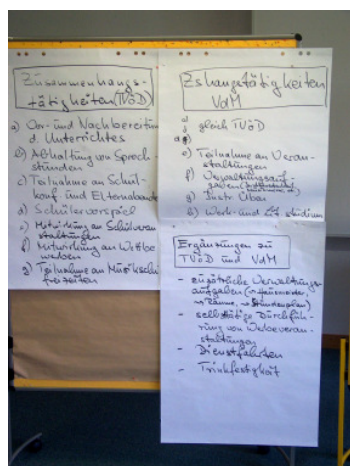 Zusammenhangs-
tätigkeiten (TVöD)
a) Vor- und Nachbereitung
d. Unterrichtes
b) Abhaltung von Sprech-
stunden
c) Teilnahme an Schul-
konf. und Elternabende
d) Schülervorspiel
e) Mitwirkung an Schulveran
staltungen
f) Mitwirkung an Wettbe
werben
g) Teilnahme an Musikschul
freizeiten
Zshangstätigkeiten
VdM
a)
gleich TVöD
d)
e) Teilnahme an Veran-
staltungen
f) Verwaltungsauf-
gaben
g) Instr. Üben
h) Werk- und Lit. studium
Ergänzungen zu
TVöD und VdM
- zusätzliche Verwaltungs-
aufgaben (→ Hausmeister,
→ Räume, → Stundenplan)
- selbsttätige Durchfüh-
rung von Werbeveran-
staltungen
- Dienstfahrten
- Trinkfestigkeit